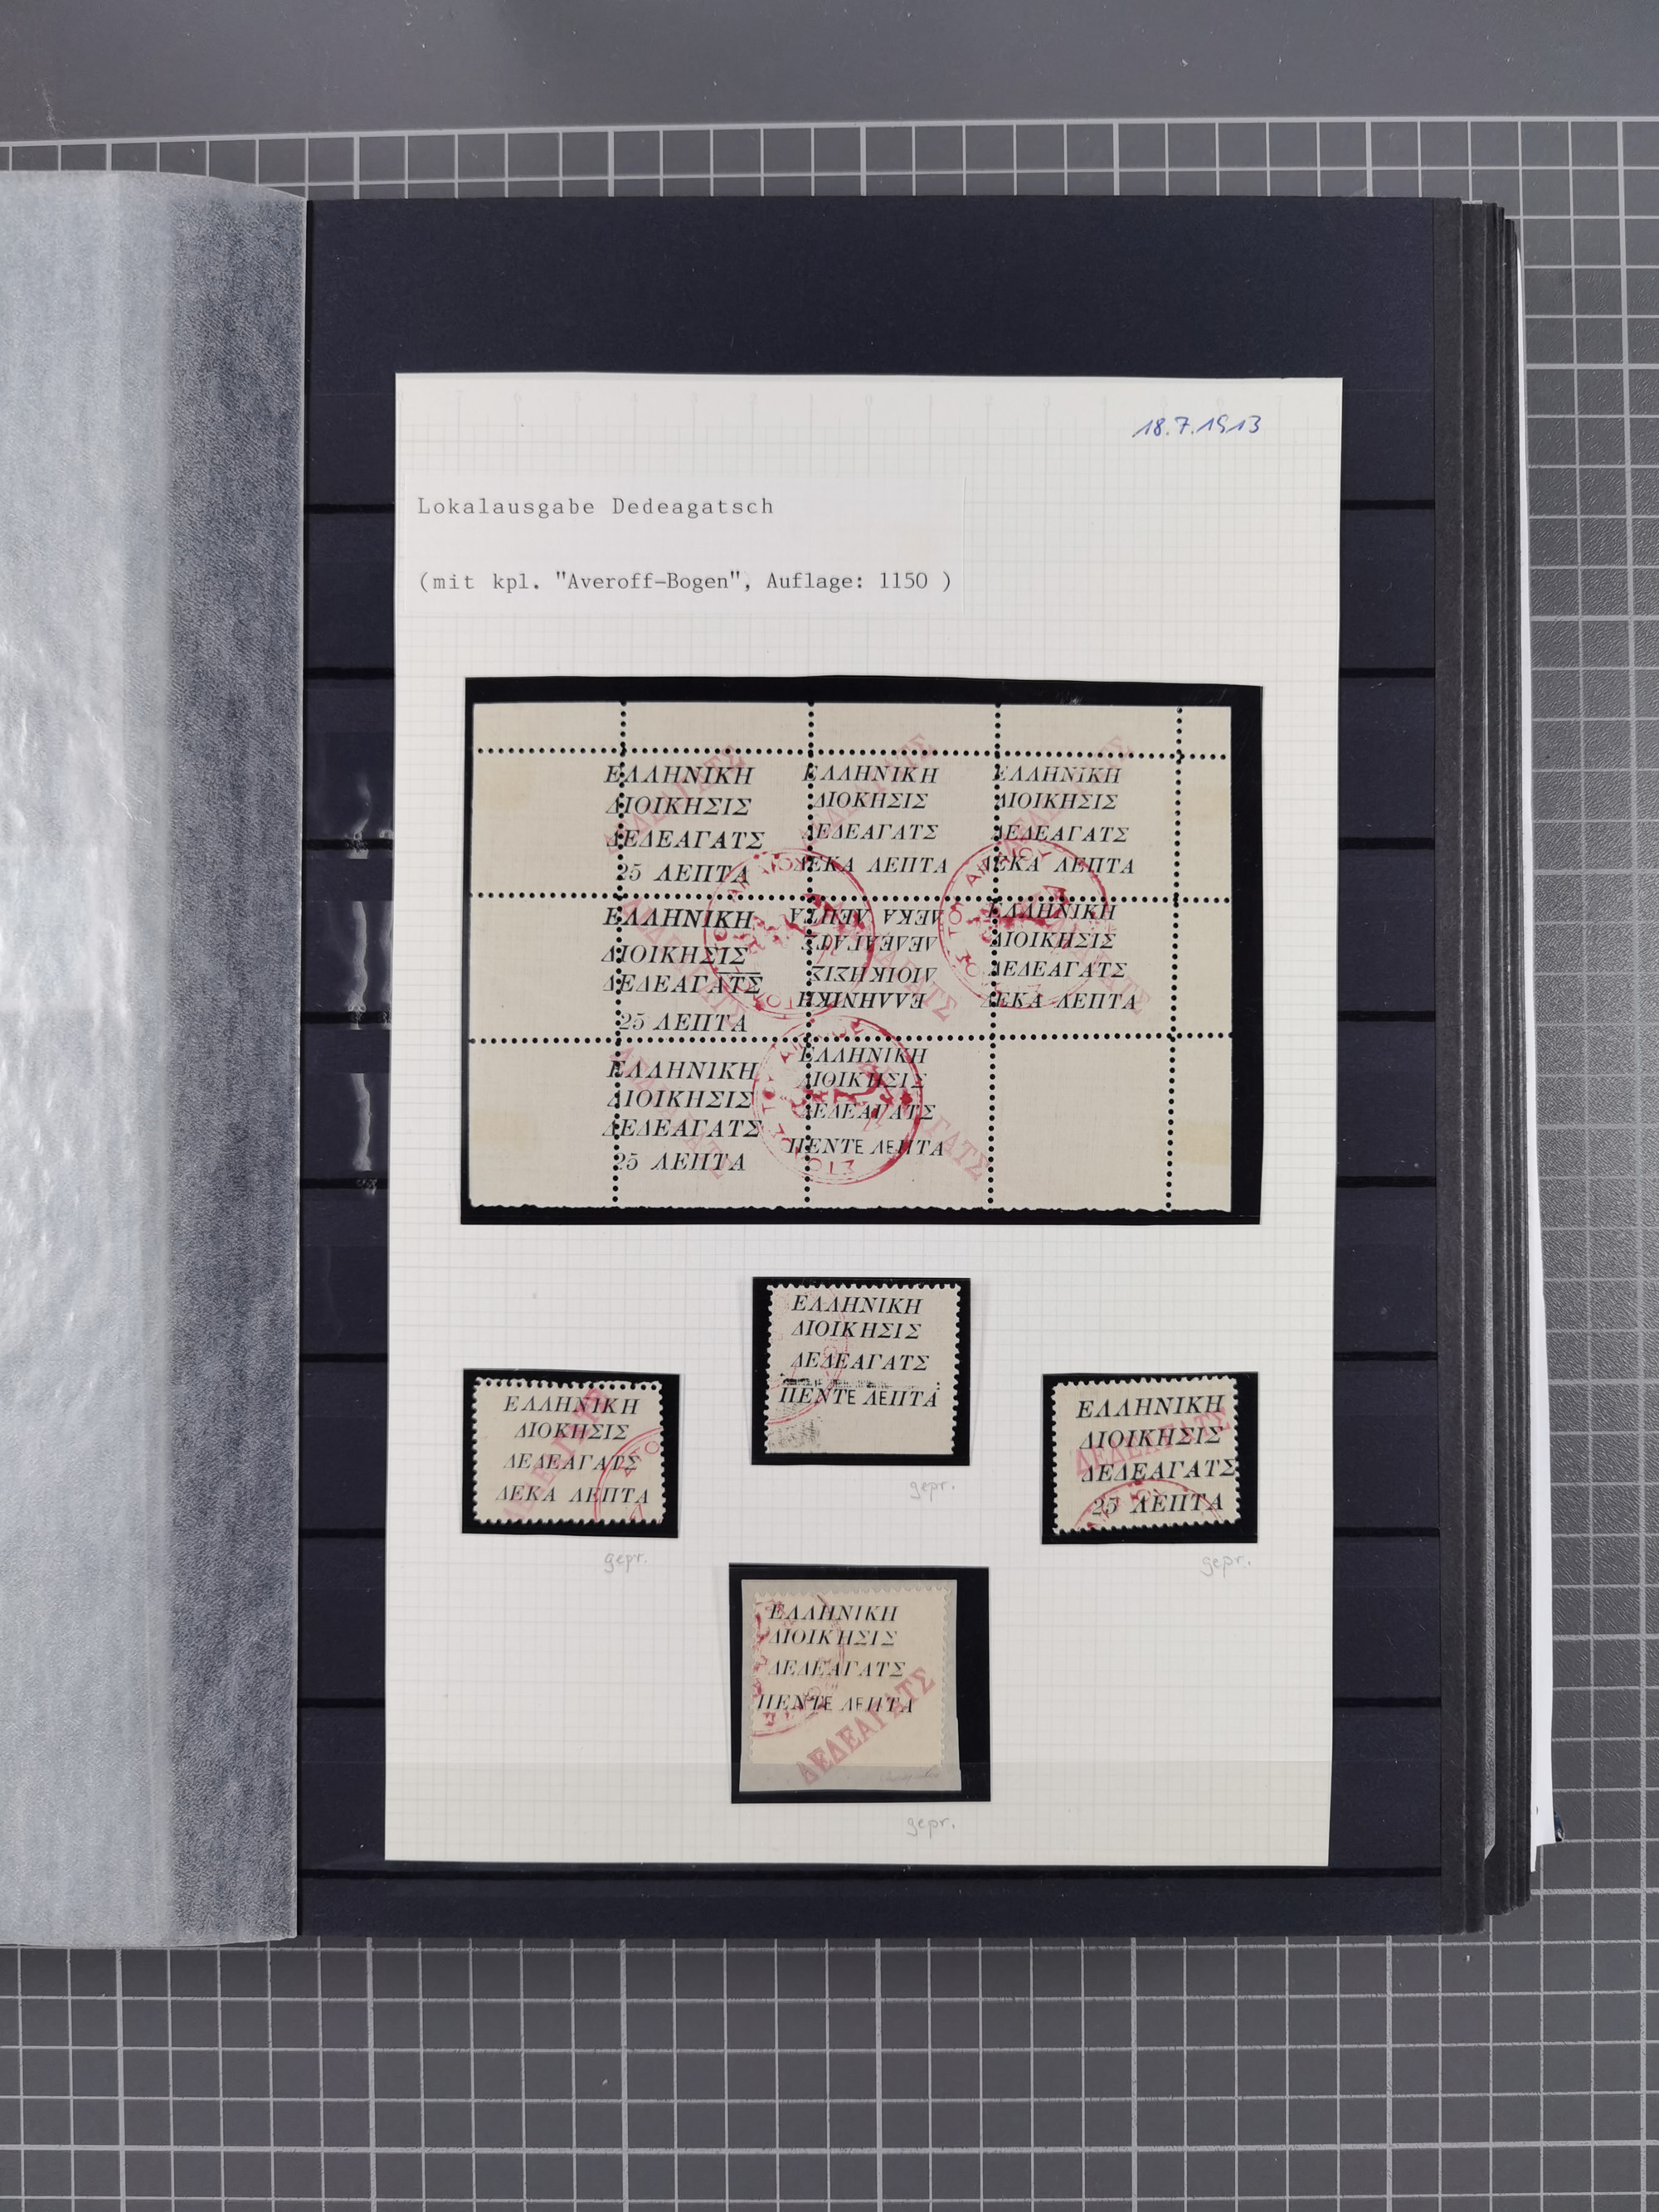 18.7.1913
Lokalausgabe Dedeagatsch
(mit kpl. "Averoff-Bogen", Auflage: 1150 )
ΕΛΛΗΝΙΚΗ
ΔΙΟΙΚΗΣΙΣ
ΔΕΔΕΑΓΑΤΣ
25 ΛΕΠΤΑ
ΕΛΛΗΝΙΚΗ
ΔΙΟΚΗΣΙΣ
ΔΕΔΕΑΓΑΤΣ
ΔΕΚΑ ΛΕΠΤΑ
ΕΛΛΗΝΙΚΗ
ΔΙΟΙΚΗΣΙΣ
ΔΕΔΕΑΓΑΤΣ
ΔΕΚΑ ΛΕΠΤΑ
ΕΛΛΗΝΙΚΗ
ΔΙΟΙΚΗΣΙΣ
ΔΕΔΕΑΓΑΤΣ
25 ΛΕΠΤΑ
ΕΛΛΗΝΙΚΗ
ΔΙΟΙΚΗΣΙΣ
ΔΕΔΕΑΓΑΤΣ
ΔΕΚΑ ΛΕΠΤΑ
ΕΛΛΗΝΙΚΗ
ΔΙΟΙΚΗΣΙΣ
ΔΕΔΕΑΓΑΤΣ
ΔΕΚΑ ΛΕΠΤΑ
ΕΛΛΗΝΙΚΗ
ΔΙΟΙΚΗΣΙΣ
ΔΕΔΕΑΓΑΤΣ
25 ΛΕΠΤΑ
ΕΛΛΗΝΙΚΗ
ΔΙΟΙΚΗΣΙΣ
ΔΕΔΕΑΓΑΤΣ
ΠΕΝΤΕ ΛΕΠΤΑ
ΕΛΛΗΝΙΚΗ
ΔΙΟΙΚΗΣΙΣ
ΔΕΔΕΑΓΑΤΣ
ΠΕΝΤΕ ΛΕΠΤΑ
gepr.
ΕΛΛΗΝΙΚΗ
ΔΙΟΚΗΣΙΣ
ΔΕΔΕΑΓΑΤΣ
ΔΕΚΑ ΛΕΠΤΑ
gepr.
ΕΛΛΗΝΙΚΗ
ΔΙΟΙΚΗΣΙΣ
ΔΕΔΕΑΓΑΤΣ
25 ΛΕΠΤΑ
ΔΕΔΕΑΓΑΤΣ
gepr.
ΕΛΛΗΝΙΚΗ
ΔΙΟΙΚΗΣΙΣ
ΔΕΔΕΑΓΑΤΣ
ΠΕΝΤΕ ΛΕΠΤΑ
ΔΕΔΕΑΓΑΤΣ
gepr.